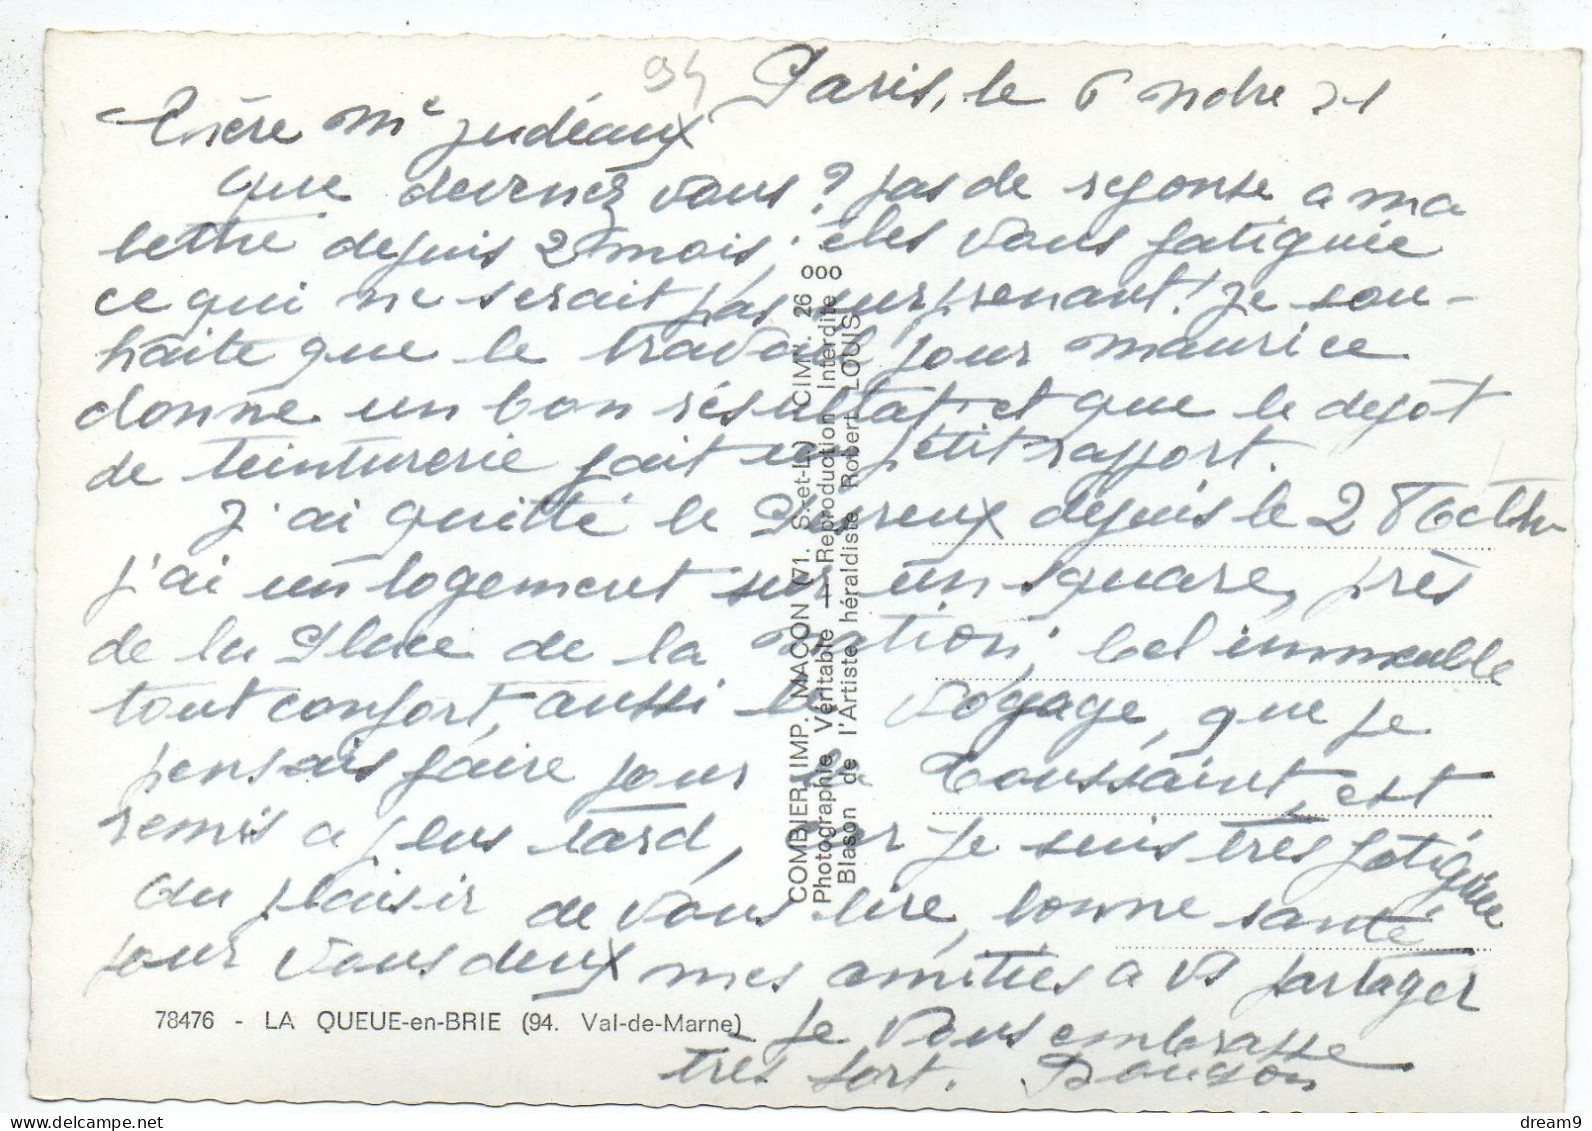 94
Paris, le 6 Nobre 71
Chère Me Judéaux
que devenez vous ? pas de reponse a ma
lettre depuis 2 mois, êtes vous fatiguée
ce qui ne serait pas surprenant ! je sou-
haite que le travail pour maurice
donne un bon résultat, et que le depot
de teinturerie fait un petit rapport.
J'ai quitté le Perreux depuis le 28 octbre
j'ai un logement sur un square, près
de la Place de la Nation, bel immeuble
tout confort, aussi le voyage, que je
pensais faire pour la Toussaint, est
remis a plus tard, car je suis très fatiguée
Au plaisir de vous lire, bonne santé
pour vous deux mes amitiés a vs partager
Je vous embrasse
très fort.
COMBIER IMP. MACON (71. S.-et-L.) "CIM". 26 000
Photographie Véritable — Reproduction Interdite
Blason de l'Artiste héraldiste Robert LOUIS
78476 - LA QUEUE-en-BRIE (94. Val-de-Marne)
delcampe.net
dream9